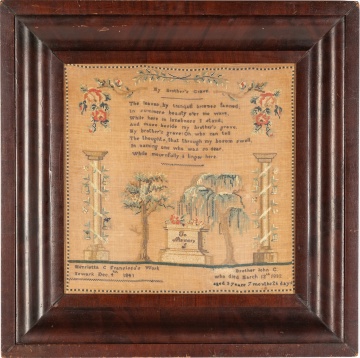 My Brother's Grave
The leaves, by tranquil breezes fanned,
In summers beauty o'er me wave,
While here in loneliness I stand,
And muse beside my brother's grave,
My brother's grave: Oh, who can tell
The thoughts, that through my bosom swell,
In seeing one who was so dear,
While mournfully I linger here.
In
Memory
Henrietta C Work
Newark Dec. 1841
Brother John C.
who died March 1832
aged 3 years 7 months days